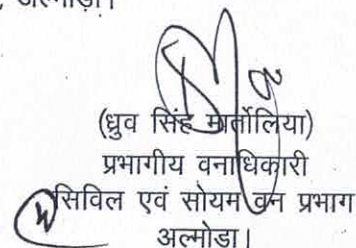 , अल्मोड़ा।
(ध्रुव सिंह मार्तोलिया)
प्रभागीय वनाधिकारी
सिविल एवं सोयम वन प्रभाग
अल्मोडा।